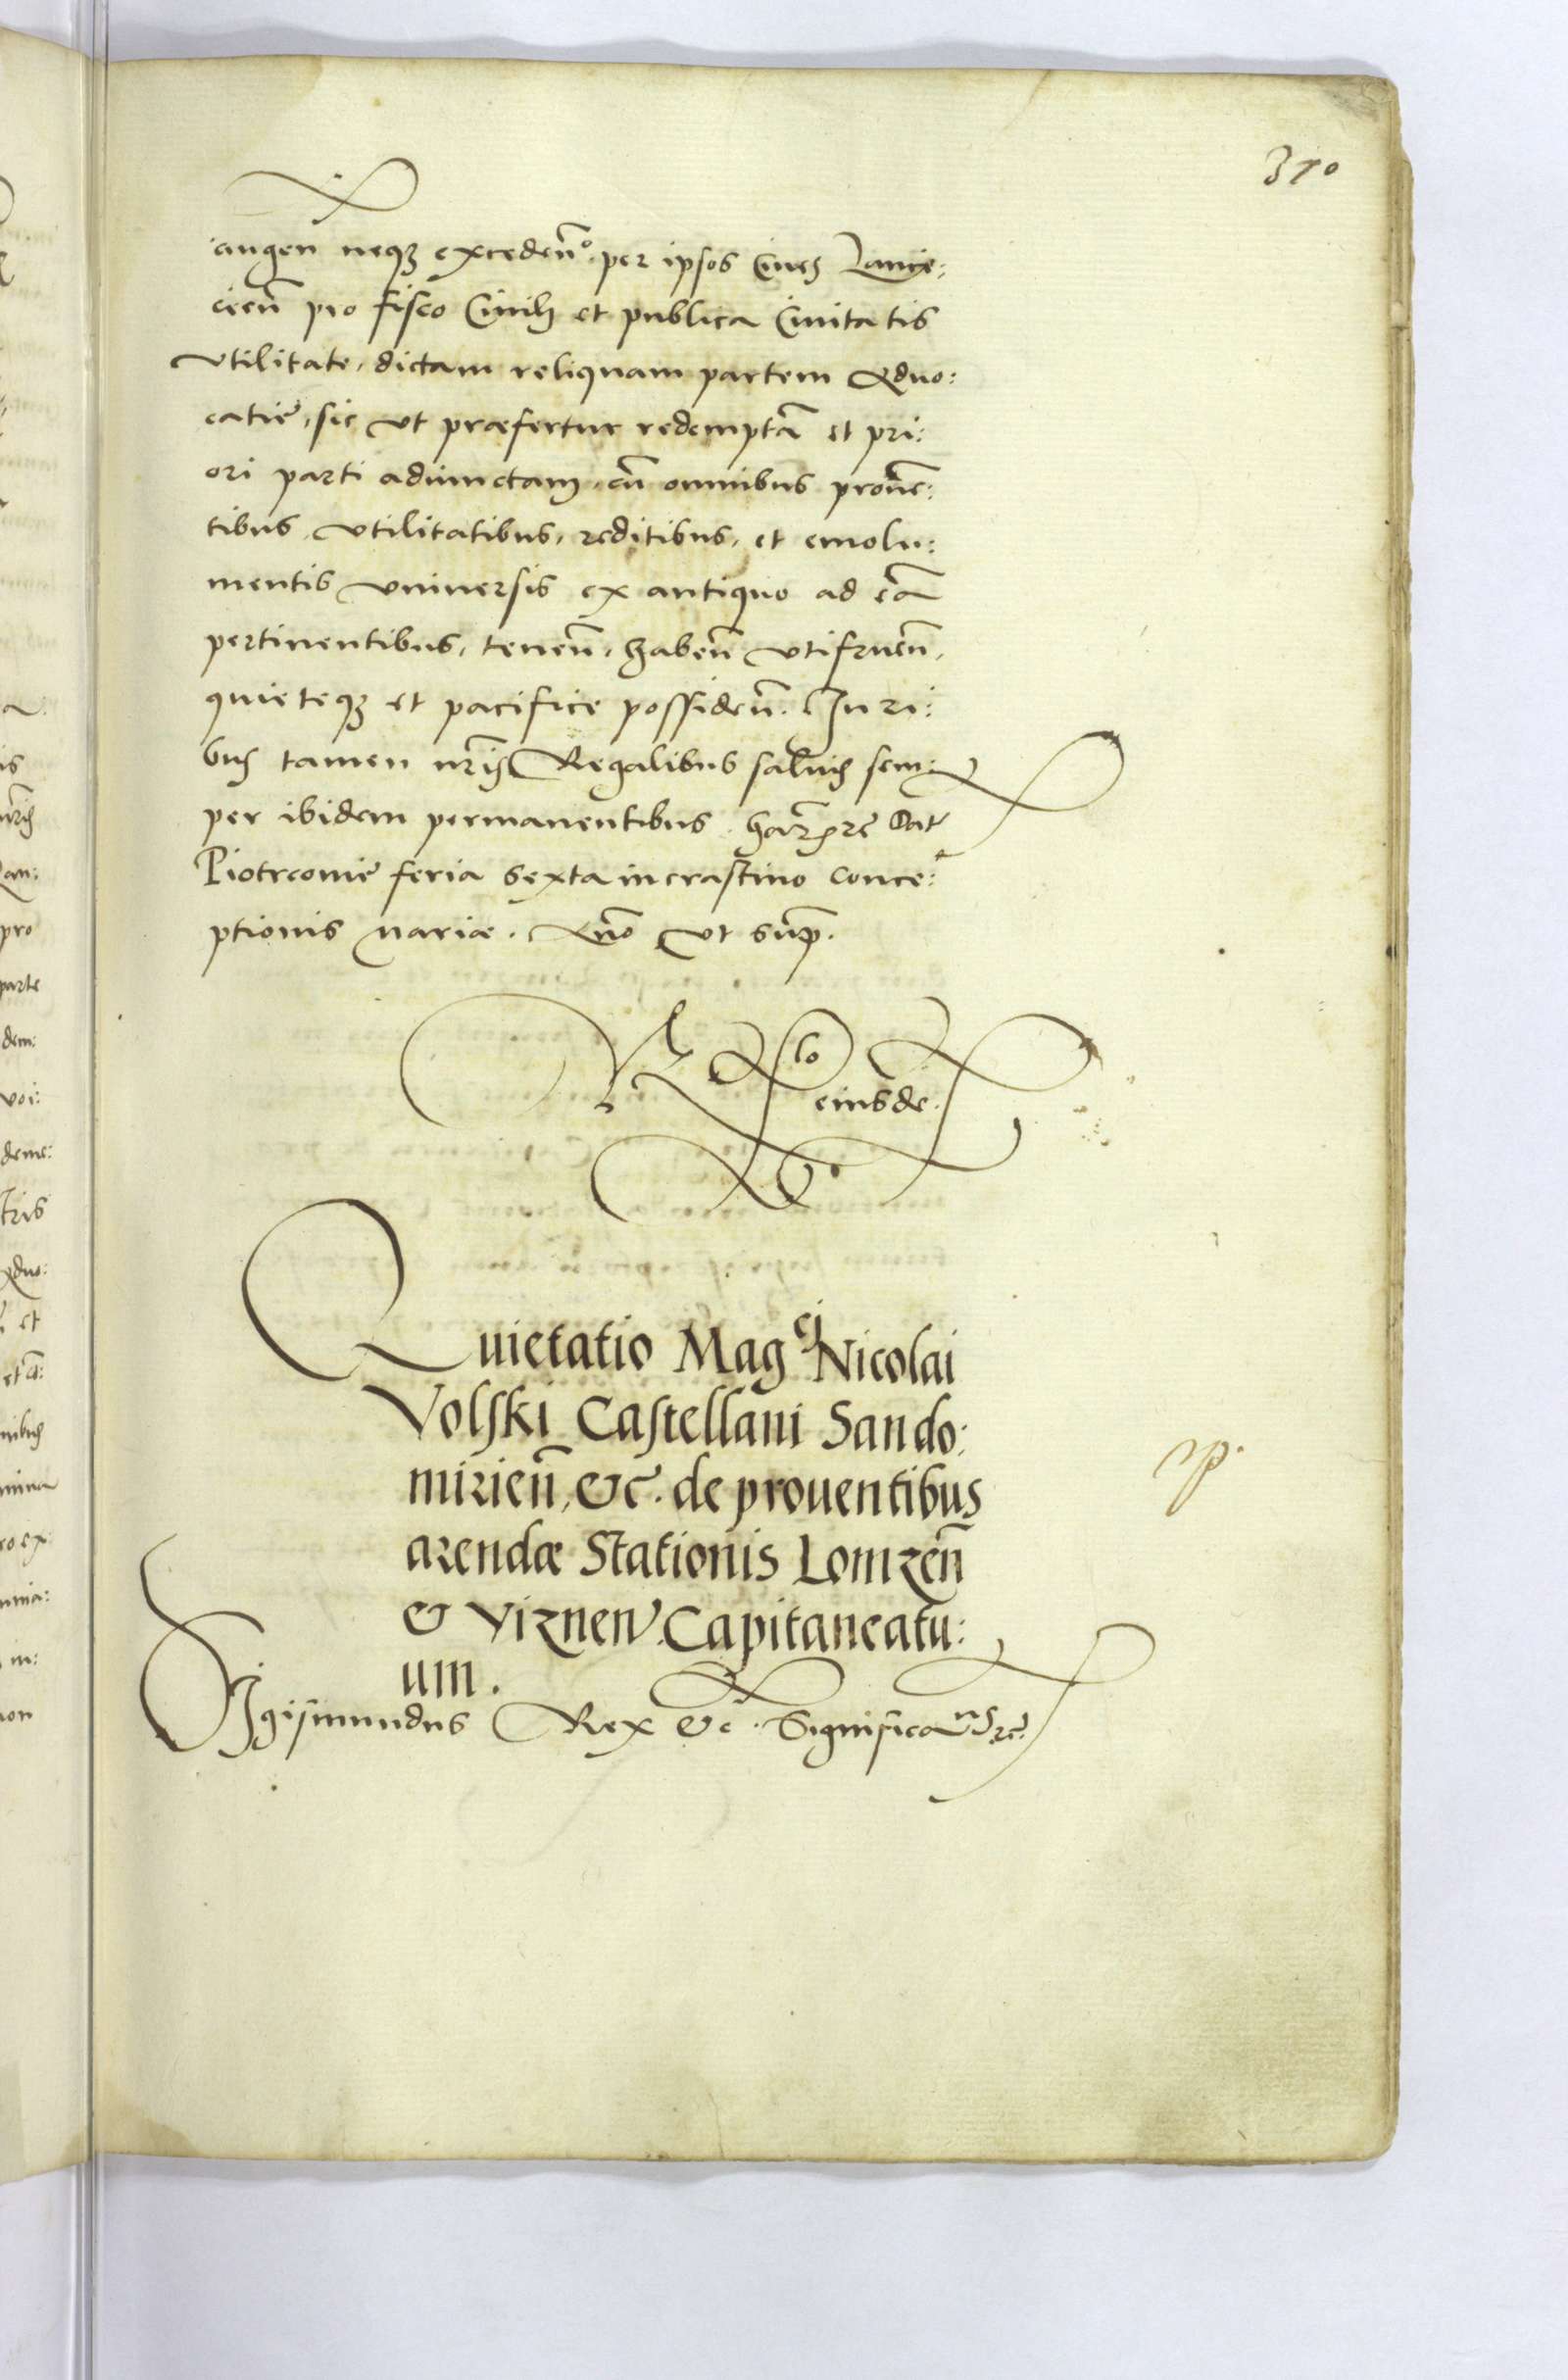 370
augen neqꝫ exceden̄. per ipsos Ciues Lanci:
cien̄ pro fisco Ciuili et publica Ciuitatis
vtilitate, dictam reliquam partem Aduo:
catie, sic vt præfertur redemptā et pri:
ori parti adiunctam, cū omnibus prouē:
tibus vtilitatibus, reditibus, et emolu:
mentis vniuersis ex antiquo ad eā
pertinentibus, tenen̄, haben̄ vtifruen̄,
quieteqꝫ et pacifice possiden̄. Iuri:
bus tamen nr̄is Regalibus saluis sem:
per ibidem permanentibus. har̄ rē Dat
Piotrcouie feria sexta in crastino conce:
ptionis Mariæ. Ann̄o vt sup̄.
Rlo
eiusde.
Quietatio Magci Nicolai
Volski Castellani Sando:
mirien̄, &c. de prouentibus
arendæ Stationis Lomzen̄
& Viznen. Capitaneatu:
um.
Sigismundus Rex &c. Significamus rē.